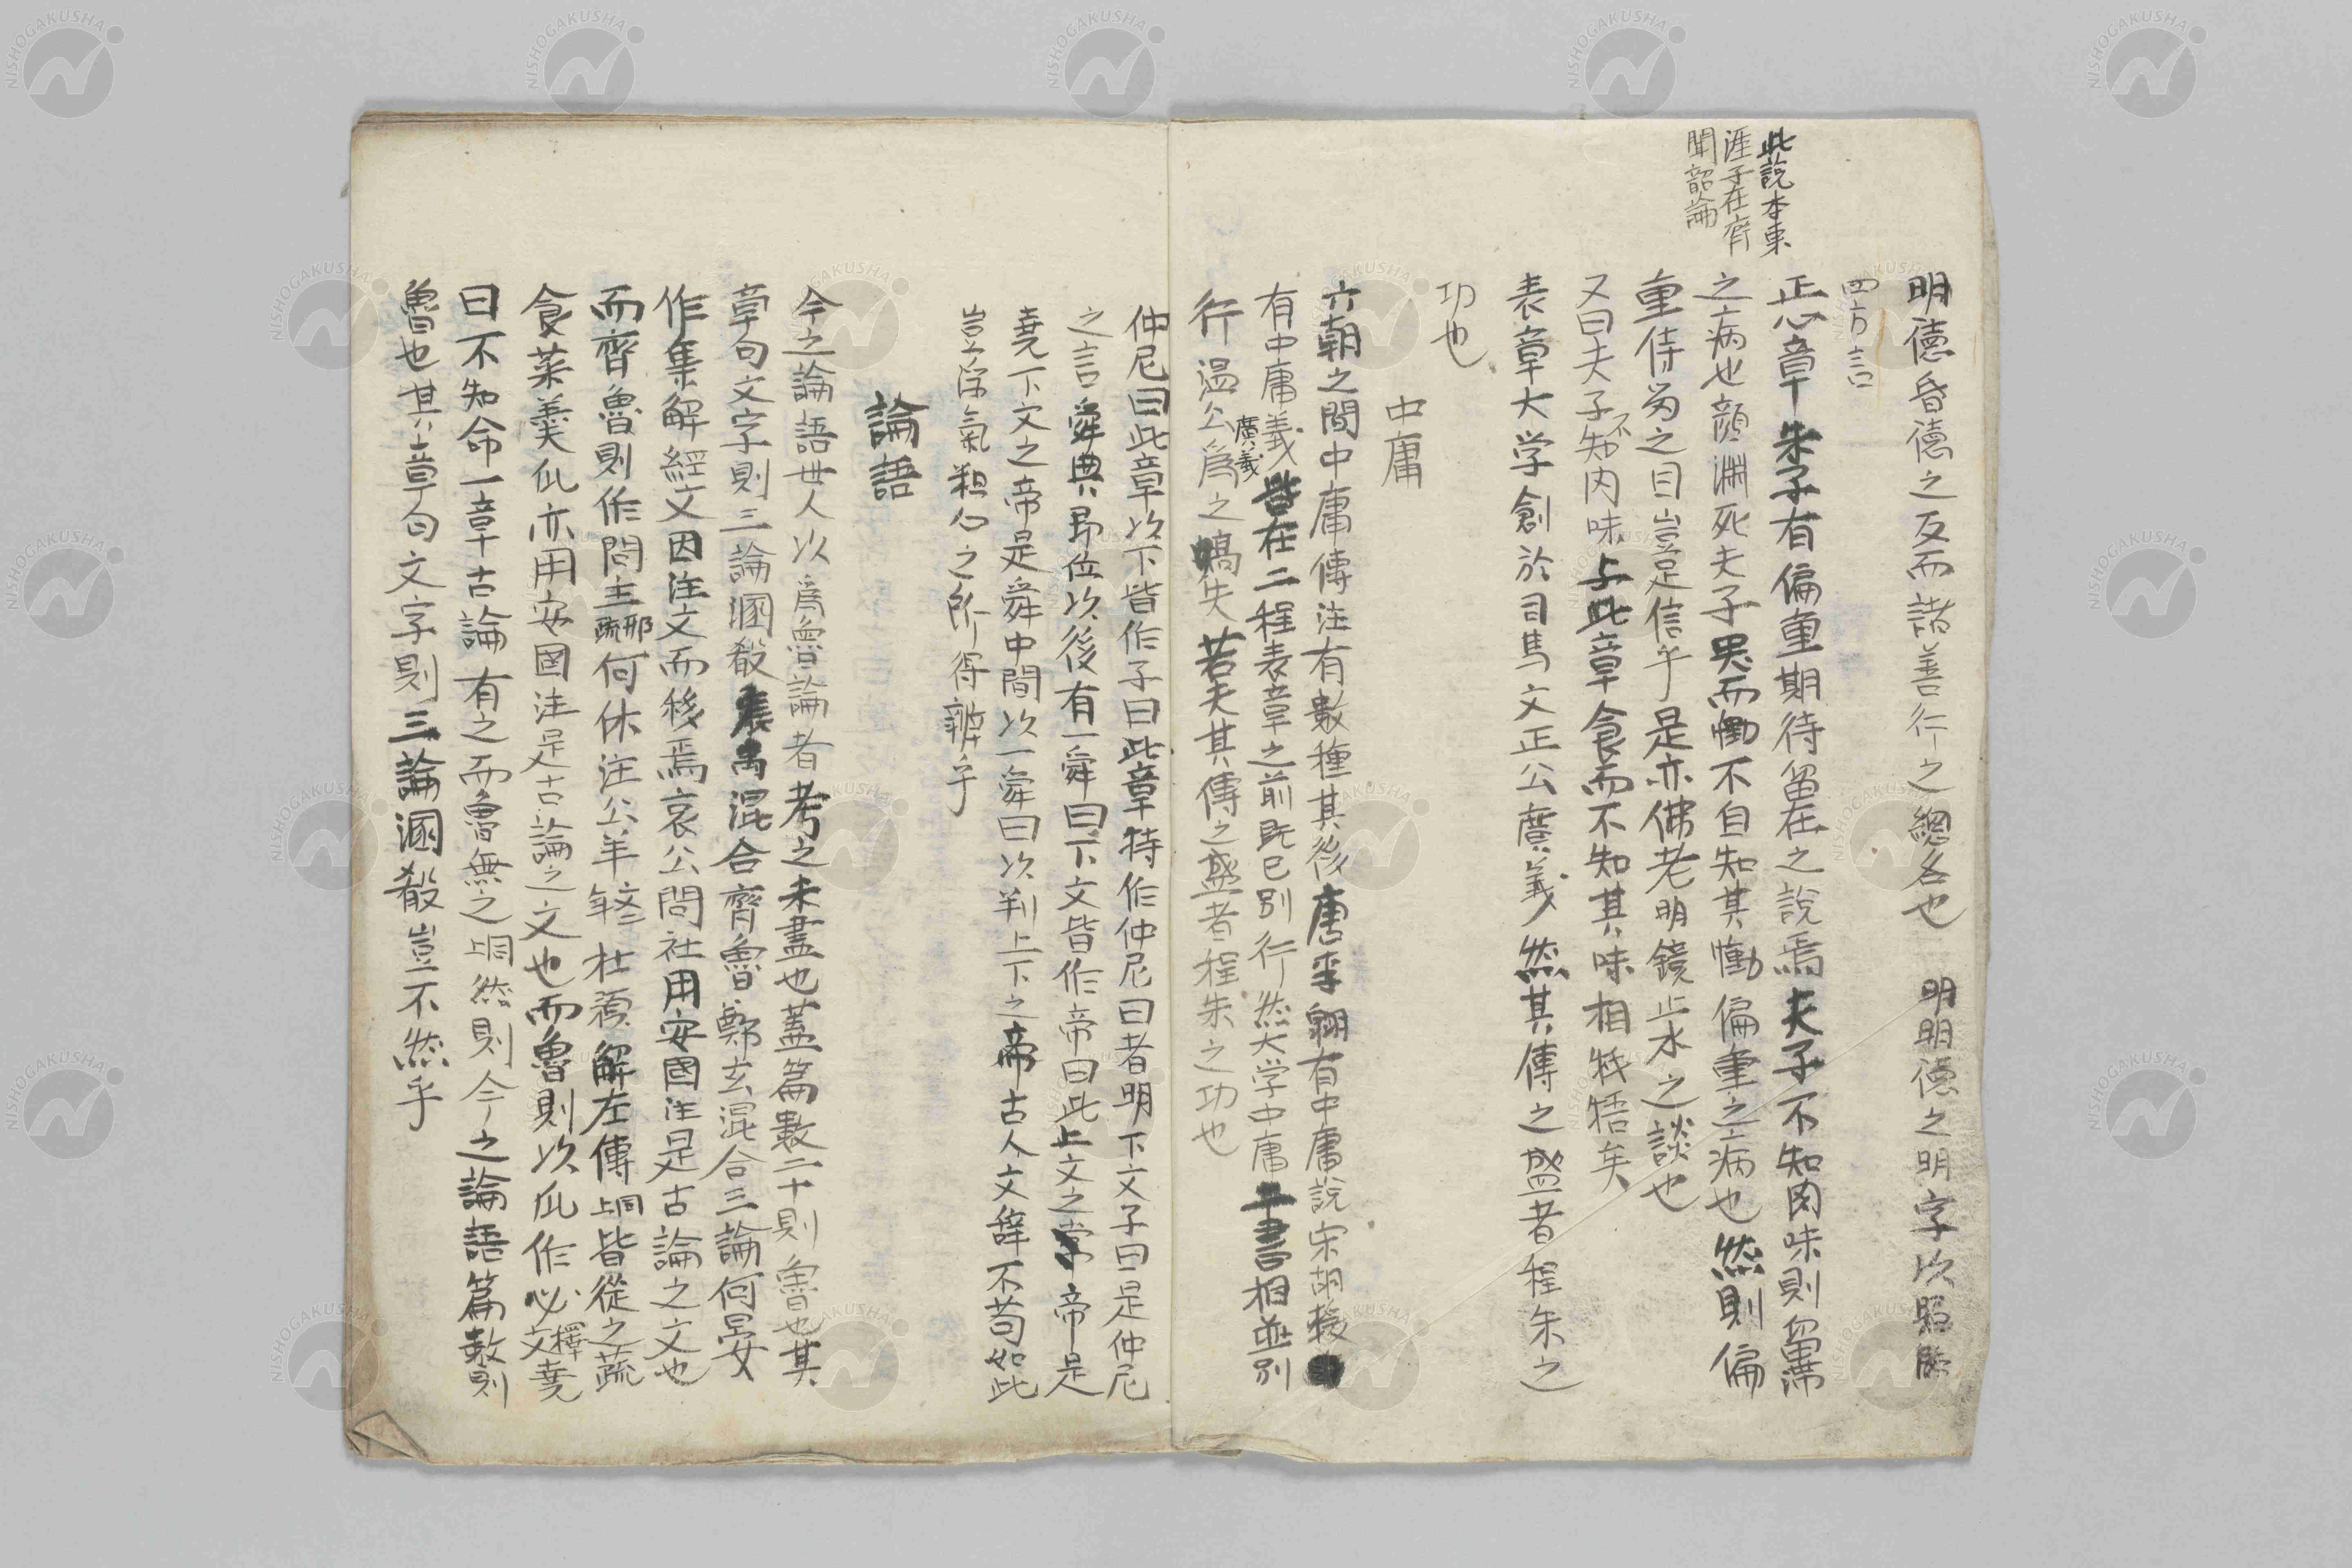 此說本東
涯子在齊
聞韶論
明德昏德之反而諸善行之總名也 明明德之明字以照臨
四方言
正心章朱子有偏重期待留在之說焉夫子不知肉味則留滯
之病也顏淵死夫子哭而慟不自知其慟偏重之病也然則偏
重待留之目豈足信乎是亦佛老明鏡止水之談也
又曰夫子不知肉味與此章食而不知其味相牴牾矣
表章大学創於司馬文正公廣義然其傳之盛者程朱之
功也
中庸
六朝之間中庸傳注有數種其後唐李翱有中庸說宋胡瑗
有中庸義廣義皆在二程表章之前既已別行然大学中庸二書相並別
行溫公爲之嚆矢若夫其傳之盛者程朱之功也
仲尼曰此章以下皆作子曰此章特作仲尼曰者明下文子曰是仲尼
之言舜典即位以後有一舜曰下文皆作帝曰此上文之帝帝是
堯下文之帝是舜中間以一舜曰以判上下之帝古人文辞不苟如此
豈浮氣粗心之所得辨乎
論語
今之論語世人以爲魯論者考之未盡也蓋篇數二十則魯也其
章句文字則三論溷殽張禹混合齊魯鄭玄混合三論何晏
作集解經文因注文而移焉哀公問社用安國注是古論之文也
而齊魯則作問主邢疏何休注公羊杜預解左傳皆從之蔬
食菜羹瓜亦用安國注是古論之文也而魯則以瓜作必釋文堯
曰不知命一章古論有之而魯無之同然則今之論語篇数則
魯也其章句文字則三論溷殽豈不然乎